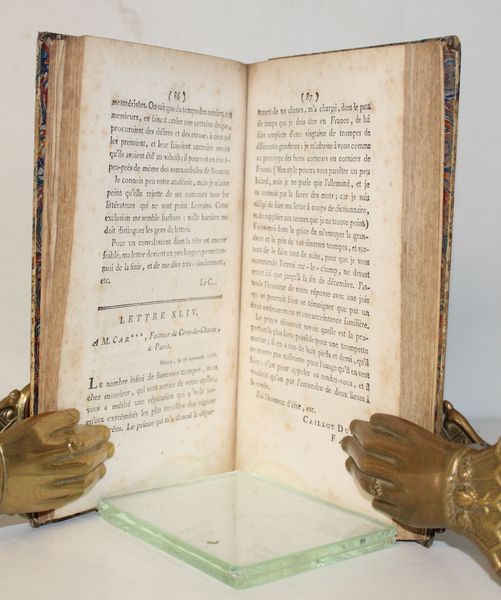 (86)
mesméristes. On sait que du temps des sorciers, ces
messieurs, en faisant avaler une certaine drogue,
procuroient des délires et des extases à ceux qui
les prenoient, et leur faisoient accroire ensuite
qu'ils avoient été au sabath; il pourroit en être à-
peu-près de même des somnambules de
Je connois peu votre académie, mais je n'aime
point qu'elle rejette de ses concours tous les
littérateurs qui ne sont point Lorrains. Cette
exclusion me semble barbare : nulle barrière ne
doit distinguer les gens de lettres.
Pour un convalescent dont la tête est encore
foible, ma lettre devient un peu longue; permettez-
moi de la finir, et de me dire très-sincèrement,
etc. Le C..
LETTRE XLIV.
A M. CAR***, Facteur de Cors-de-Chasse,
à Paris.
Nancy, le novembre
LE nombre infini de fameuses trompes, mon
cher monsieur, qui sont sorties de votre atelier,
vous a mérité une réputation qui a volé jus-
qu'aux extrémités les plus reculées des régions
Le prince qui m'a donné le dépar-
(87)
tement de ses chasses, m'a chargé, dans le peu
de temps que je dois être en France, de lui
faire emplette d'une vingtaine de trompes de
différentes grandeurs : je m'adresse à vous comme
au prototype des bons corneurs ou corniers de
France. (Mon style pourra vous paroître un peu
bâtard, mais je ne parle que l'allemand, et je
ne connois pas la force des mots; car je suis
obligé de faire ma lettre à coups de dictionnaire,
et de suppléer aux termes que je ne trouve point.)
Faites-moi donc la grace de m'envoyer la gran-
deur et le prix de vos diverses trompes, et sur-
tout de le faire tout de suite, pour que je vous
commande l'envoi sur-le-champ, ne devant
rester ici que jusqu'à la fin de décembre. J'at-
tends l'honneur de votre réponse avec une joie
qui se pourroit bien se témoigner que par un
embrassement et une accointance familière.
Le prince désireroit savoir quelle est la pro-
portion la plus forte possible pour une trompette
marine; il en a une de huit pieds et demi, qu'il
ne trouve pas suffisante pour l'usage qu'il en veut
faire : c'est pour appeler au rendez-vous, et il
voudroit qu'on pût l'entendre de deux lieues à
la ronde.
J'ai l'honneur d'être, etc.
CAILLOT DU
F